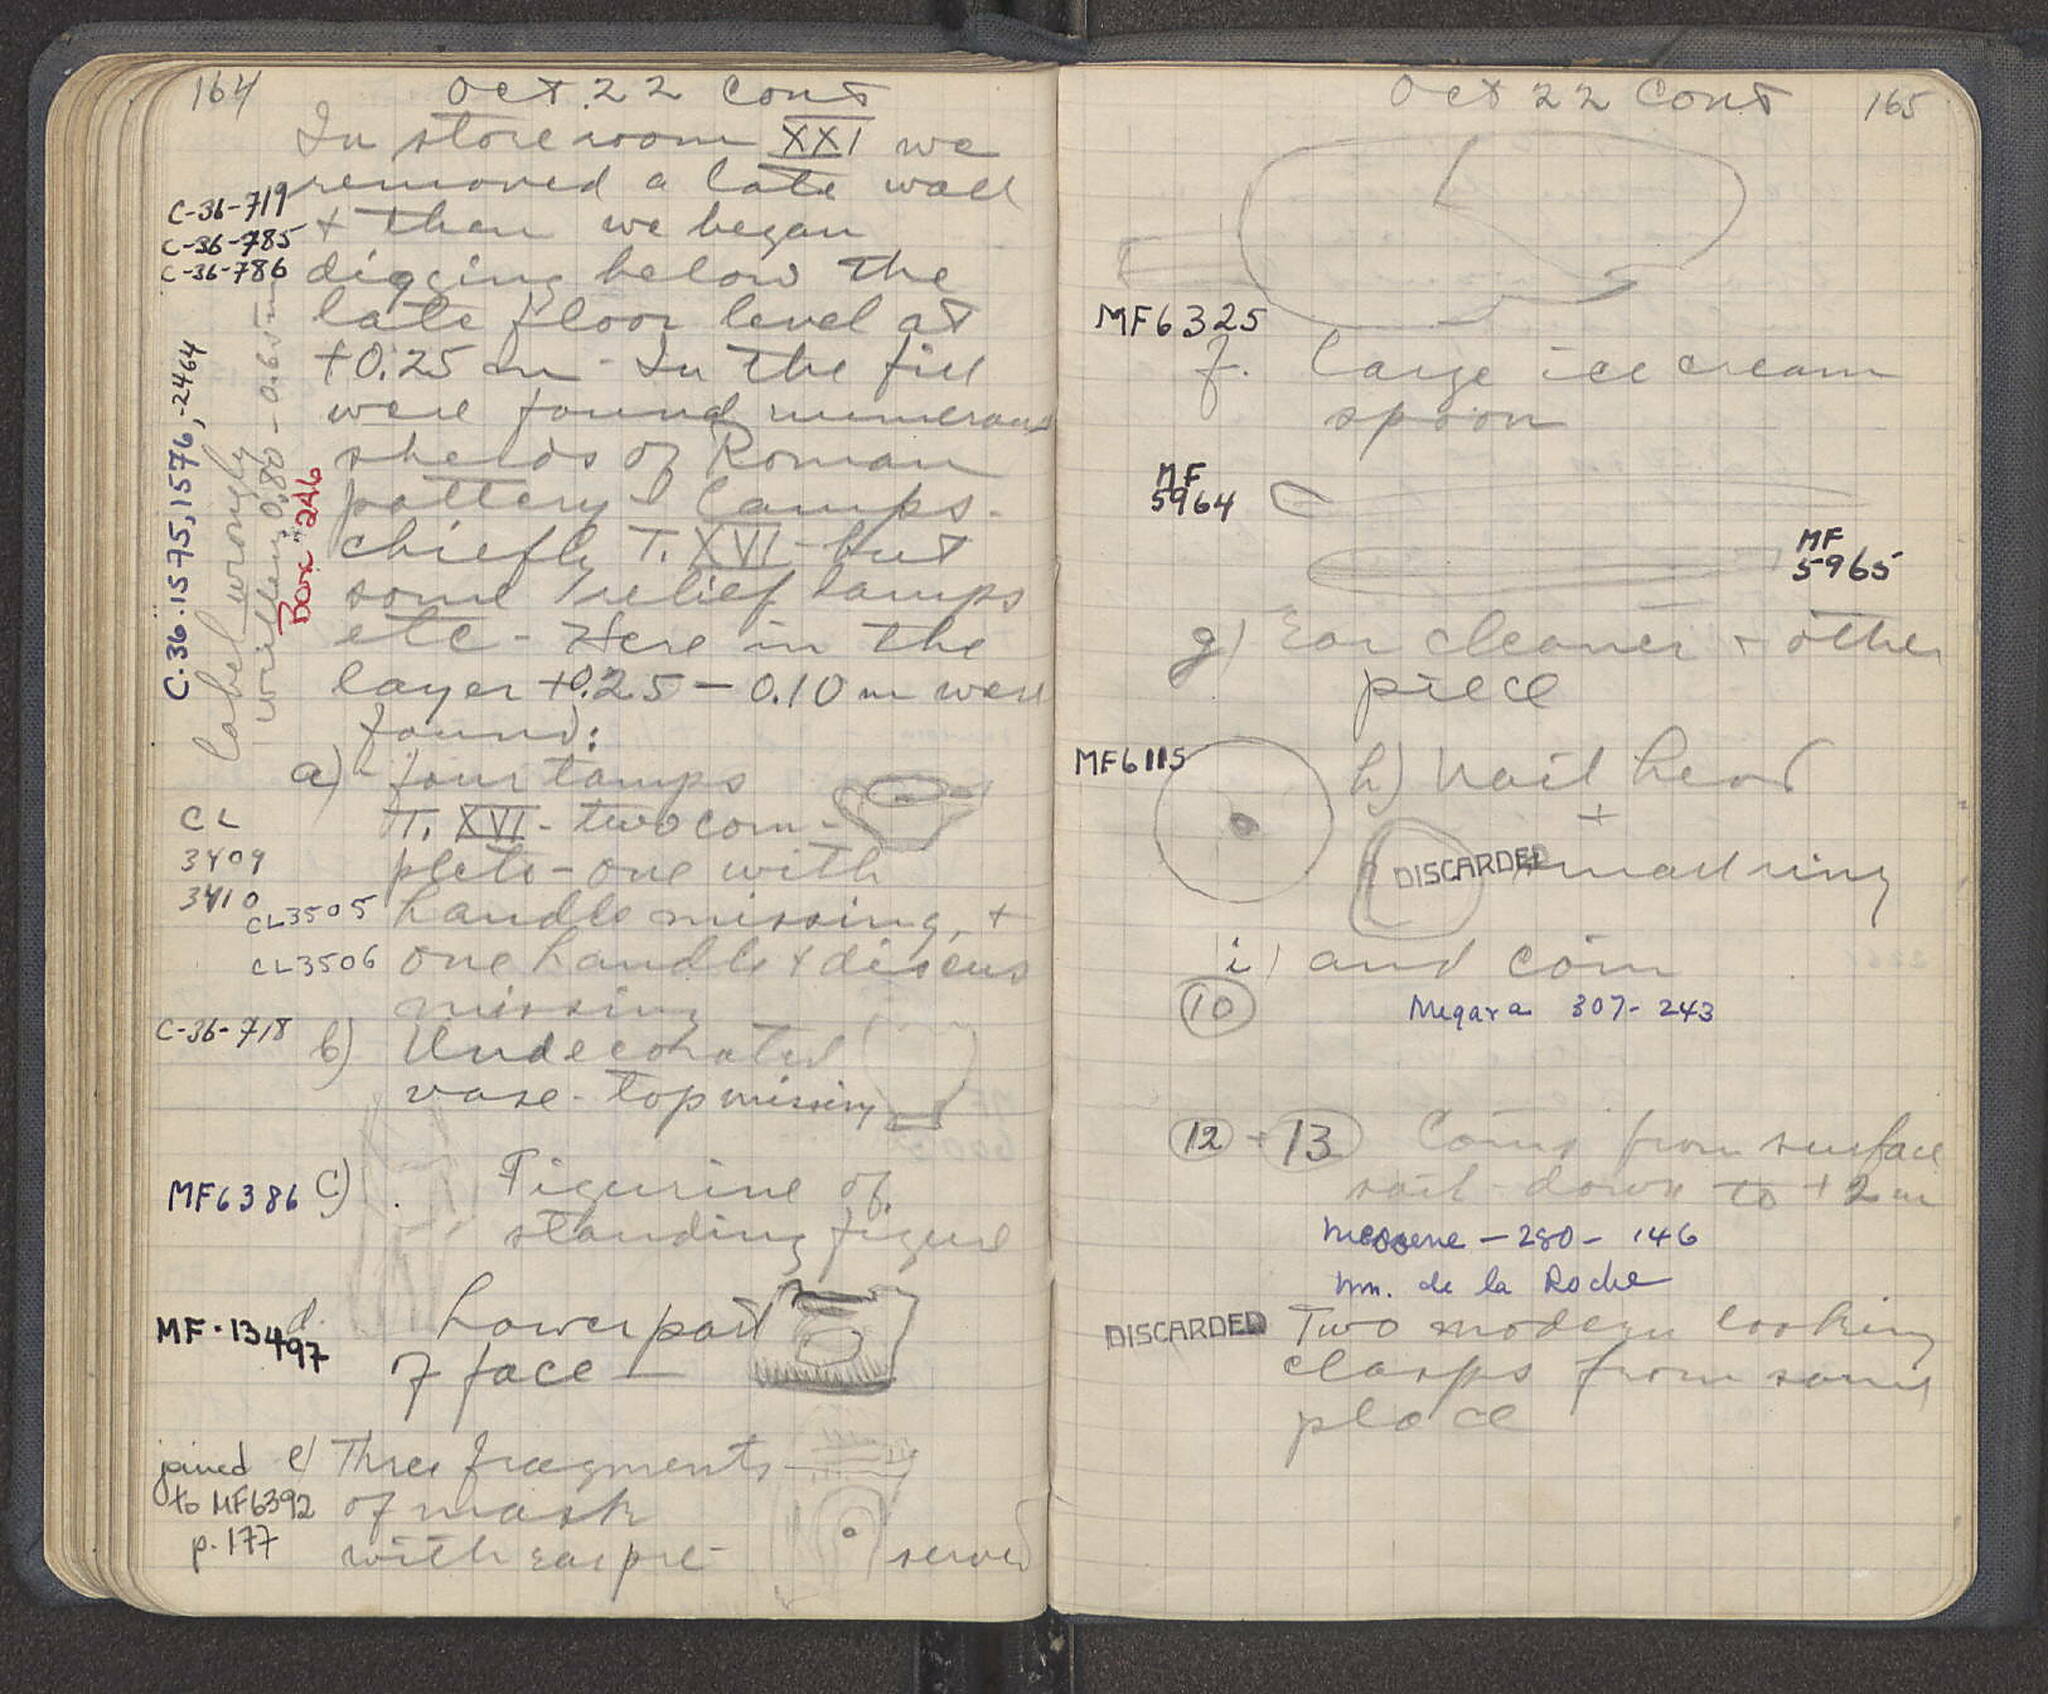 164
Oct 22 Cont
In storeroom XXI we
removed a late wall
C-36-719
C-36-785
C-36-786
+ then we began
digging below the
late floor level at
+0.25 m - In the fill
were found numerous
sherds of Roman
pottery & lamps -
chiefly T. XVI - but
some relief lamps
etc - Here in the
layer +0.25 - 0.10 m were
found:
C-36-1575, 1576, -2464
label wrongly
written 0.80 - 0.65 m
Box 246
a) four lamps
T. XVI - two com-
plete - one with
handle missing, +
one handle & discus
missing
CL
3409
3410
CL3505
CL3506
C-36-718
b) Undecorated
vase - top missing
MF6386
c) Figurine of
standing figure
MF-13497
d. Lower part
of face -
joined
to MF6392
p. 177
e) Three fragments
of mask
with ear pre-
served
Oct 22 Cont
165
MF6325
f. large ice cream
spoon
MF
5964
MF
5965
g) Ear cleaner + other
piece
MF6115
h) Nail head
+
DISCARDED
small ring
i) and coin
10
Megara 307-243
12 - 13 Coins from surface
soil - down to +2 m
Messene - 280 - 146
Wm. de la Roche
DISCARDED
Two modern looking
clasps from same
place